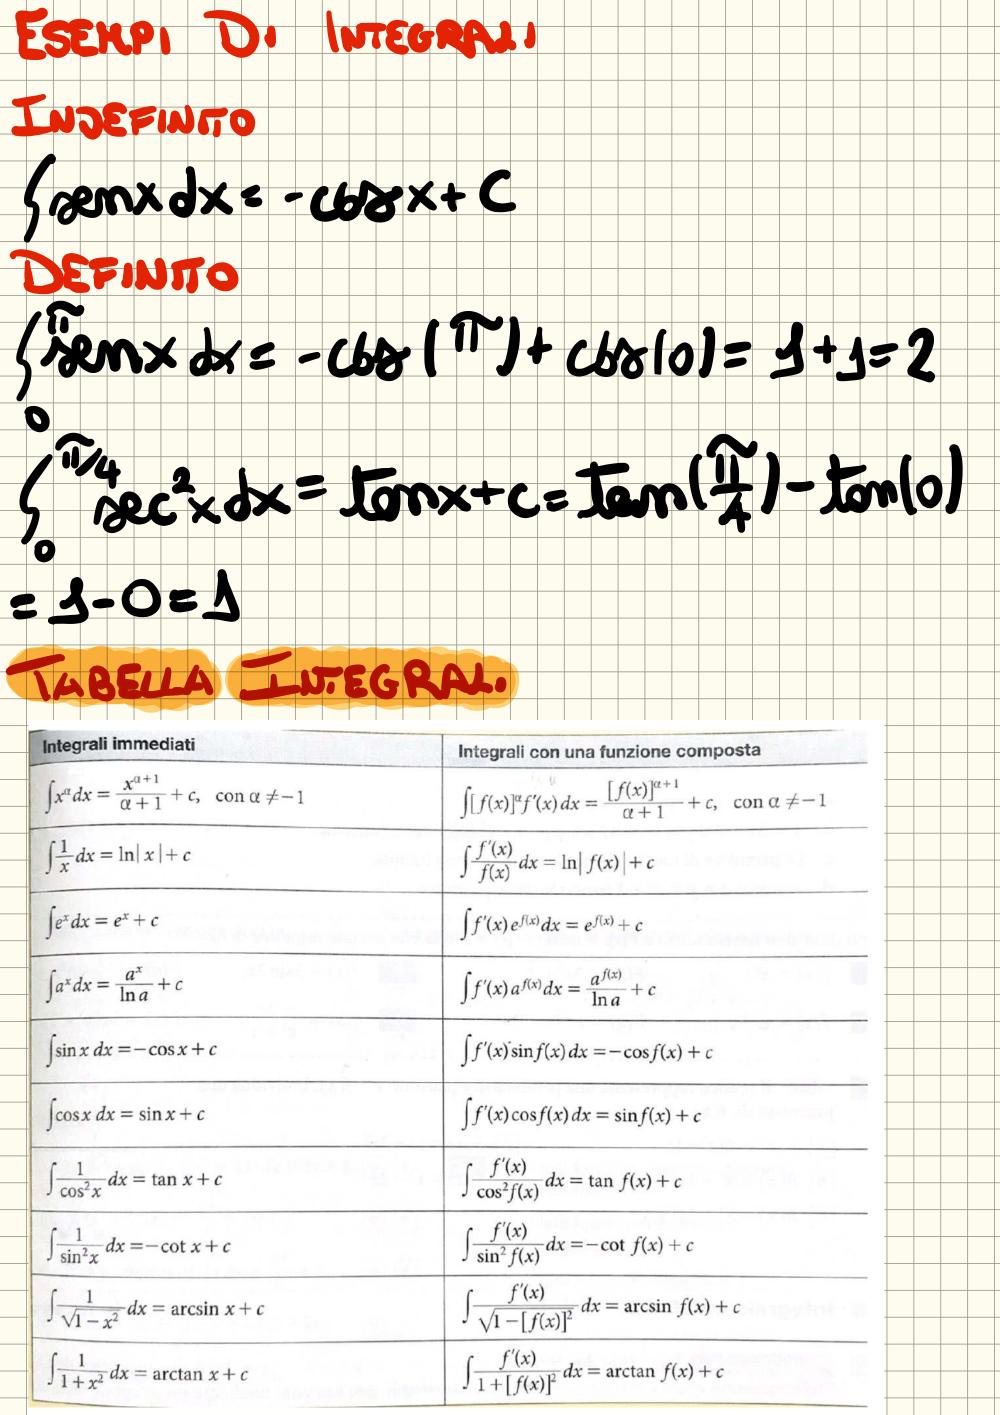 ESEMPI DI INTEGRALI
INDEFINITO
∫senx dx = -cosx + C
DEFINITO
∫₀^π senx dx = -cos(π) + cos(0) = 1+1=2
∫₀^(π/4) sec²x dx = tanx+c = tan(π/4) - tan(0)
= 1-0=1
TABELLA INTEGRALI
Integrali immediati | Integrali con una funzione composta
∫x^α dx = x^(α+1)/(α+1) + c, con α ≠ −1 | ∫[f(x)]^α f'(x) dx = [f(x)]^(α+1)/(α+1) + c, con α ≠ −1
∫1/x dx = ln|x| + c | ∫f'(x)/f(x) dx = ln|f(x)| + c
∫e^x dx = e^x + c | ∫f'(x) e^(f(x)) dx = e^(f(x)) + c
∫a^x dx = a^x/ln a + c | ∫f'(x) a^(f(x)) dx = a^(f(x))/ln a + c
∫sin x dx = −cos x + c | ∫f'(x) sin f(x) dx = −cos f(x) + c
∫cos x dx = sin x + c | ∫f'(x) cos f(x) dx = sin f(x) + c
∫1/cos²x dx = tan x + c | ∫f'(x)/cos² f(x) dx = tan f(x) + c
∫1/sin²x dx = −cot x + c | ∫f'(x)/sin² f(x) dx = −cot f(x) + c
∫1/√(1 − x²) dx = arcsin x + c | ∫f'(x)/√(1 − [f(x)]²) dx = arcsin f(x) + c
∫1/(1 + x²) dx = arctan x + c | ∫f'(x)/(1 + [f(x)]²) dx = arctan f(x) + c